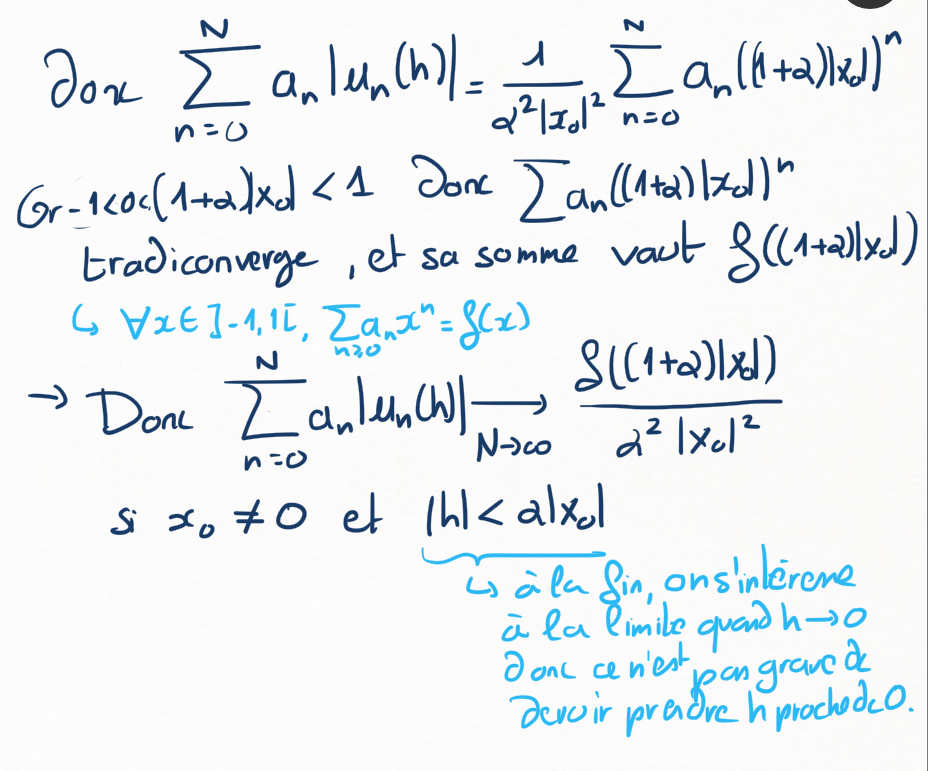 donc \sum_{n=0}^{N} a_n |u_n(h)| = \frac{1}{α²|x_0|²} \sum_{n=0}^{N} a_n ((1+α)|x_0|)^n
Or -1<0<(1+α)|x_0| < 1 donc \sum a_n ((1+α)|x_0|)^n
tradiconverge, et sa somme vaut f((1+α)|x_0|)
↳ ∀x ∈ ]-1,1[, \sum_{n≥0} a_n x^n = f(x)
→ Donc \sum_{n=0}^{N} a_n |u_n(h)| \xrightarrow[N→∞]{} \frac{f((1+α)|x_0|)}{α² |x_0|²}
si x_0 ≠ 0 et |h| < α|x_0|
↳ à la fin, on s'intéresse
à la limite quand h→0
donc ce n'est pas grave de
devoir prendre h proche de 0.